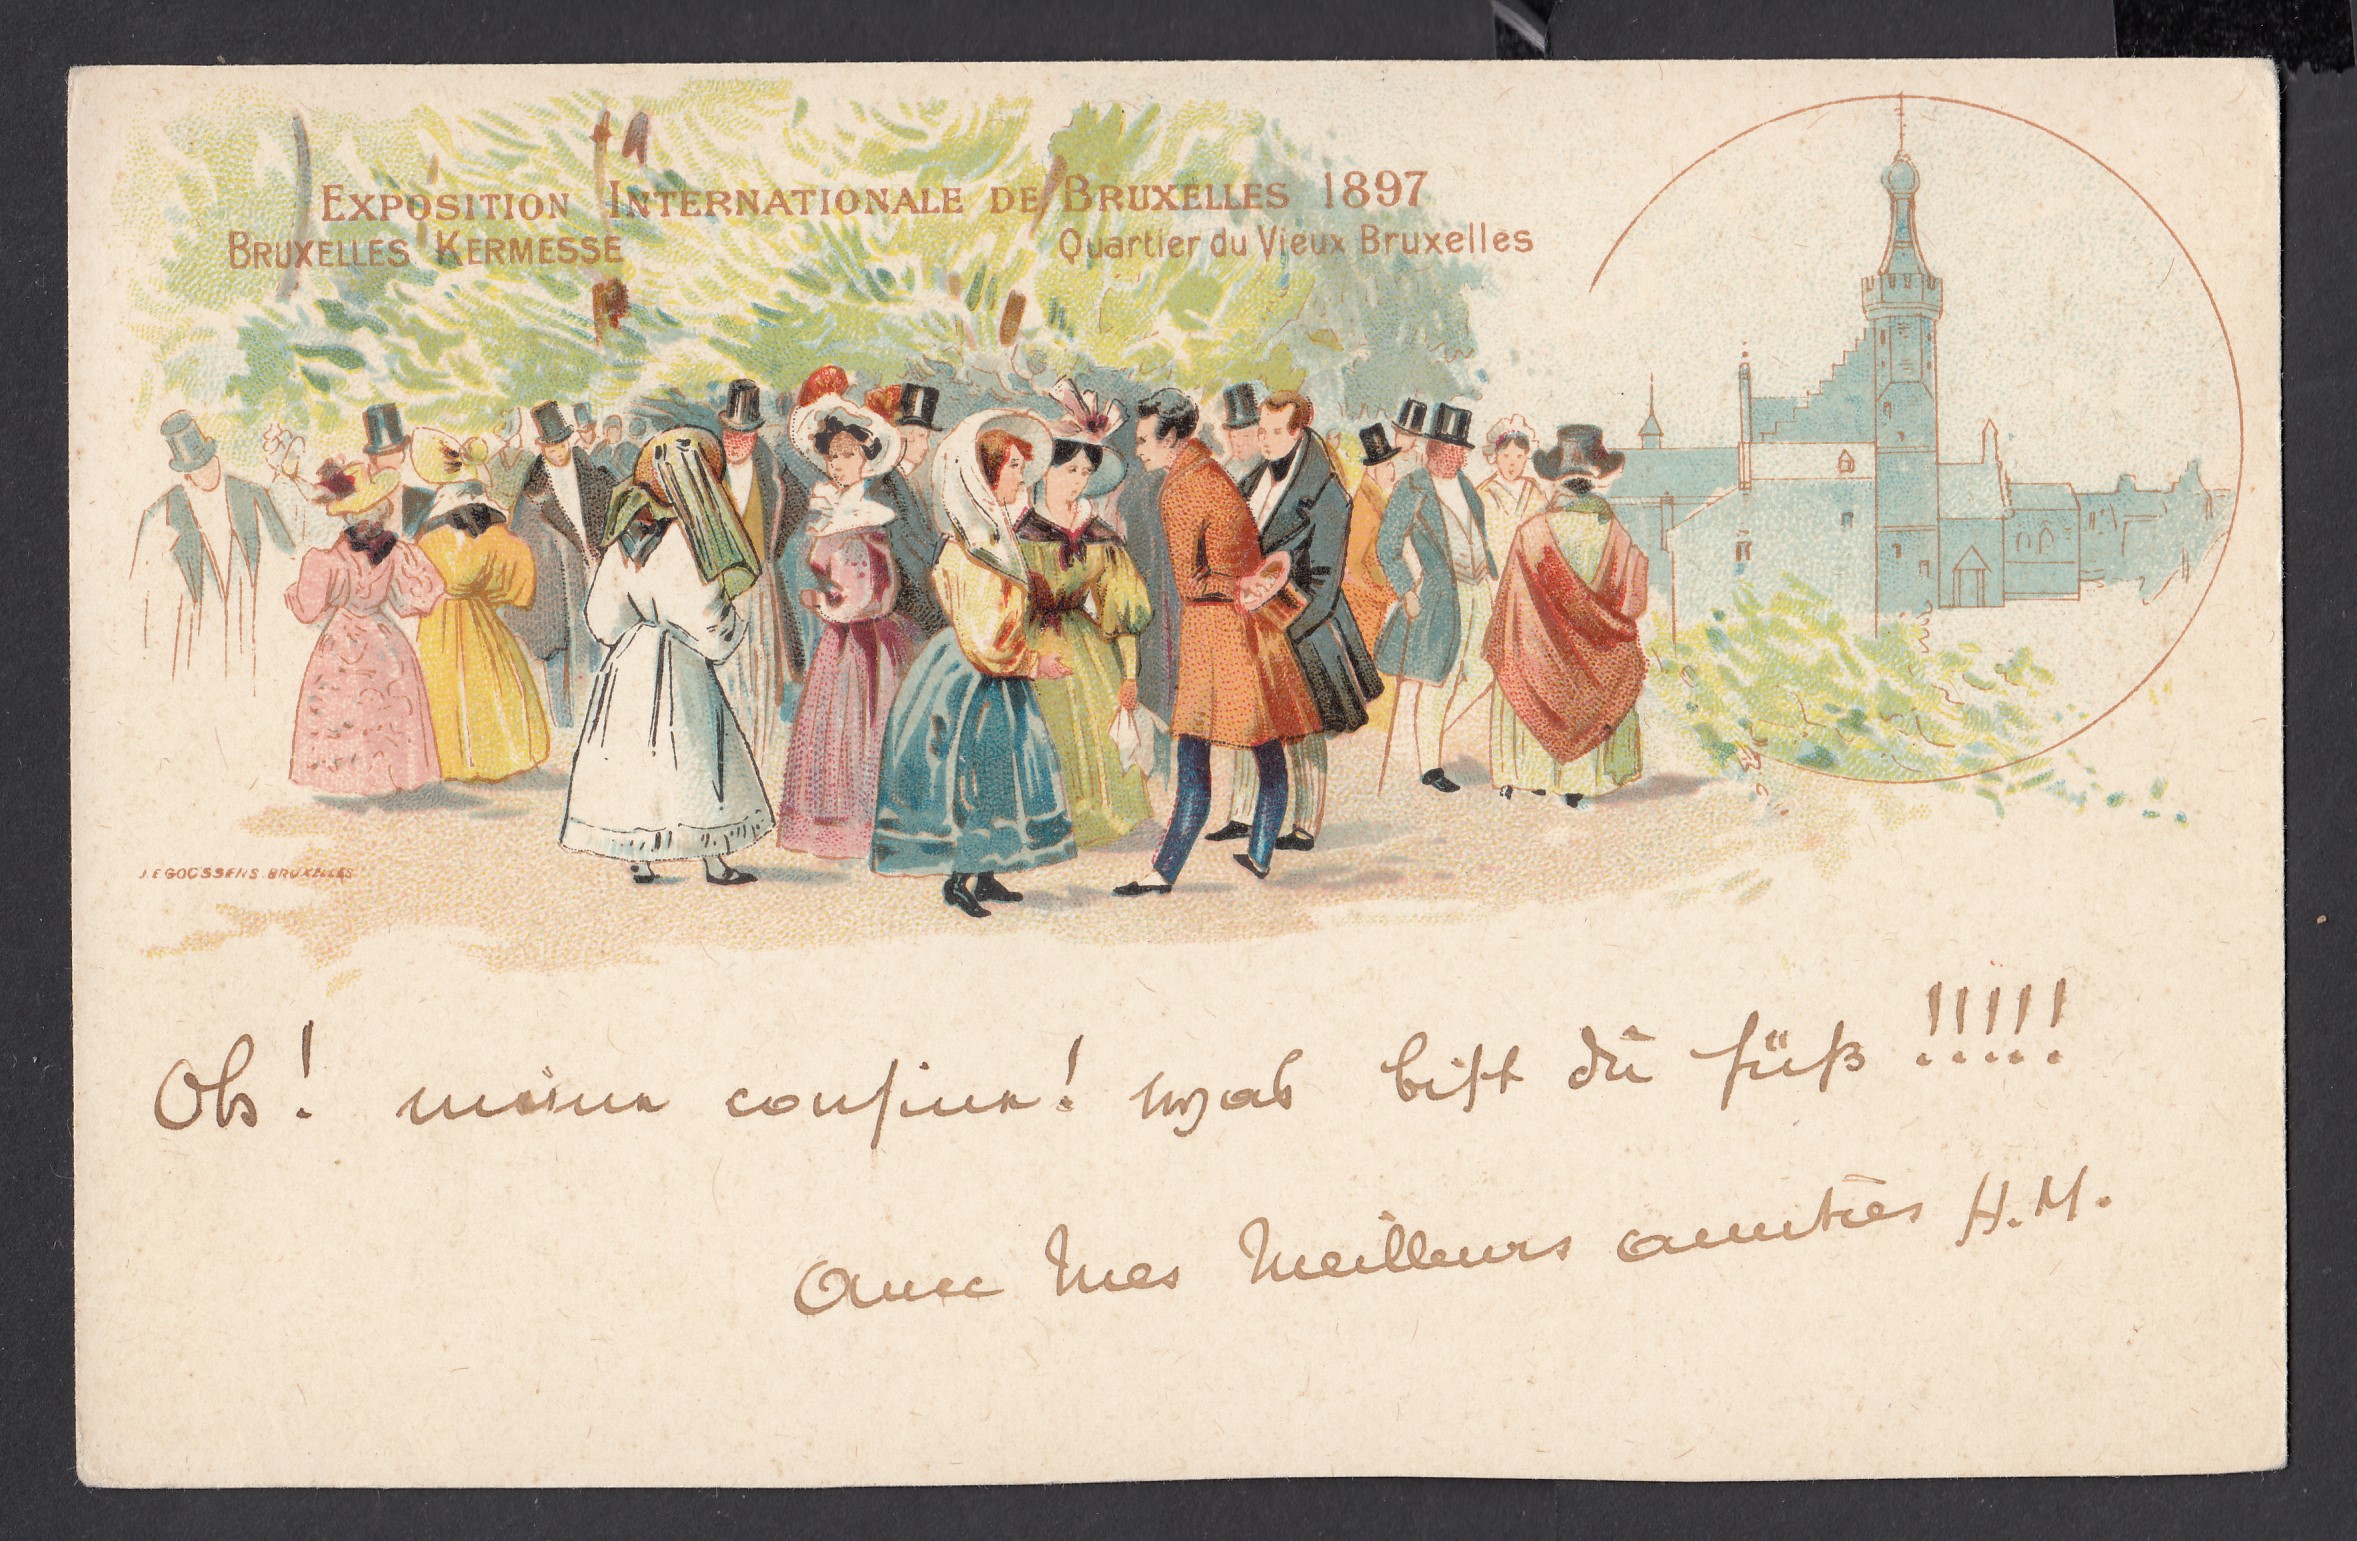 EXPOSITION INTERNATIONALE DE BRUXELLES 1897
BRUXELLES KERMESSE
Quartier du Vieux Bruxelles
J.E GOOSSENS. BRUXELLES
Oh! meine cousine! was bist du süß!!!!!
avec mes meilleurs amitiés H.M.